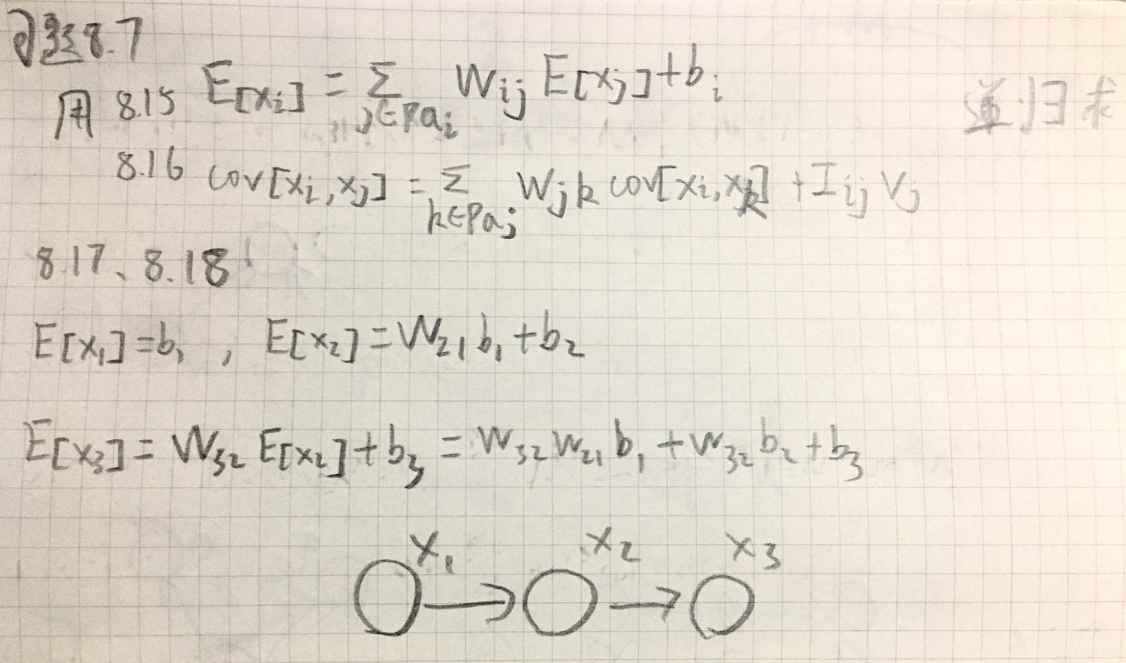 习题8.7
用 8.15 E[xᵢ] = Σ_{j∈Paᵢ} Wᵢⱼ E[xⱼ] + bᵢ 递归求
8.16 cov[xᵢ, xⱼ] = Σ_{k∈Paⱼ} Wⱼₖ cov[xᵢ, xₖ] + Iᵢⱼ Vⱼ
8.17、8.18
E[x₁] = b₁ , E[x₂] = W₂₁ b₁ + b₂
E[x₃] = W₃₂ E[x₂] + b₃ = W₃₂ W₂₁ b₁ + W₃₂ b₂ + b₃
x₁ x₂ x₃